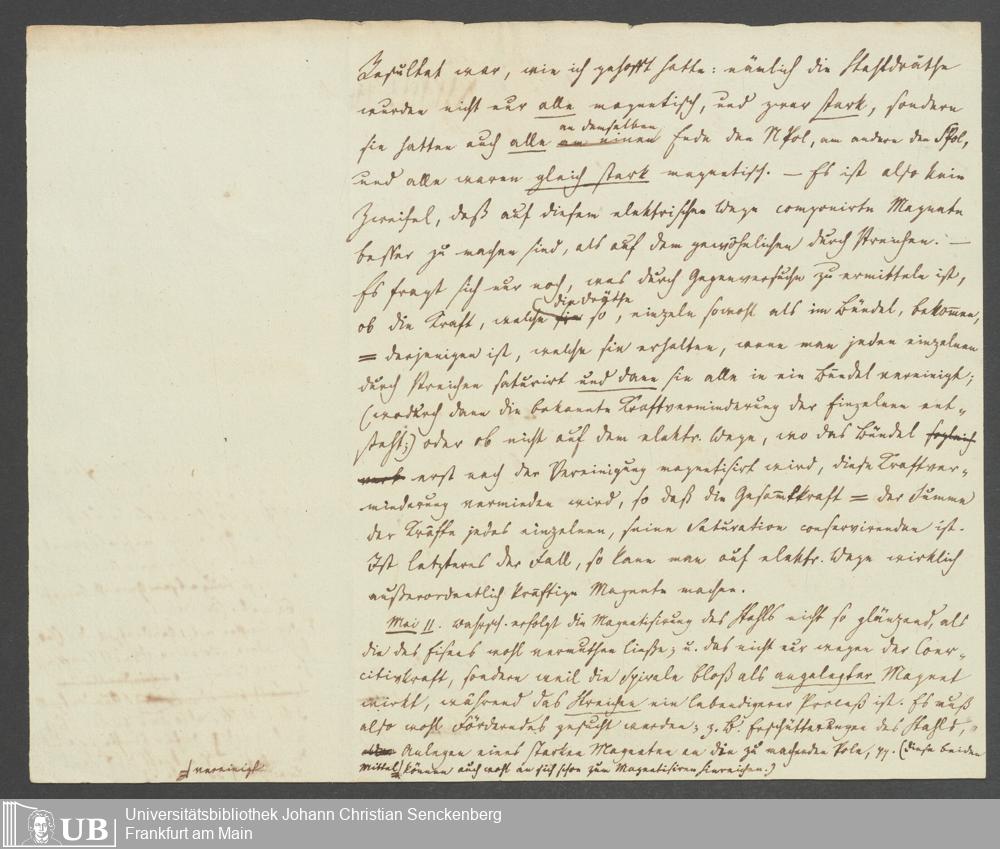 Resultat war, wie ich gehofft hatte: nämlich die Stahldräthe
wurden nicht nur alle magnetisch, und zwar stark, sondern
an demselben
sie hatten auch alle am einen Ende den N Pol, am andern den S Pol,
und alle waren gleich stark magnetisch. — Es ist also kein
Zweifel, daß auf diesem elektrischen Wege componirte Magnete
besser zu machen sind, als auf dem gewöhnlichen durch Streichen. —
Es fragt sich nur noch, was durch Gegenversuche zu ermitteln ist,
die Dräthe
ob die Kraft, welche sie so, einzeln sowohl als im Bündel, bekom̅en,
= derjenigen ist, welche sie erhalten, wenn man jeden einzelnen
durch Streichen saturirt und dann sie alle in ein Bündel vereinigt;
(wodurch dann die bekannte Kraftverminderung der Einzelnen ent-
steht;) oder ob nicht auf dem elektr. Wege, wo das Bündel sogleich
erst nach der Vereinigung magnetisirt wird, diese Kraftver-
minderung vermieden wird, so daß die Gesam̅tkraft = der Summe
der Kräfte jedes einzelnen, seine Saturation conservirenden ist.
Ist letzteres der Fall, so kann man auf elektr. Wege wirklich
außerordentlich kräftige Magnete machen.
Mai 11. wahrsch. erfolgt die Magnetisirung des Stahls nicht so glänzend, als
die des Eisens wohl vermuthen ließe; u. das nicht nur wegen der Coer-
citivkraft, sondern weil die Spirale bloß als angelegter Magnet
wirkt, während das Streichen ein lebendigerer Proceß ist. Es muß
also wohl Förderndes gesucht werden; z. B. Erschütterungen des Stahls,
Anlegen eines starken Magneten an die zu machenden Pole, pp. (Diese beiden
Mittel) können auch wohl an sich schon zum Magnetisiren hinreichen.)
vereinigt
Universitätsbibliothek Johann Christian Senckenberg
Frankfurt am Main
UB